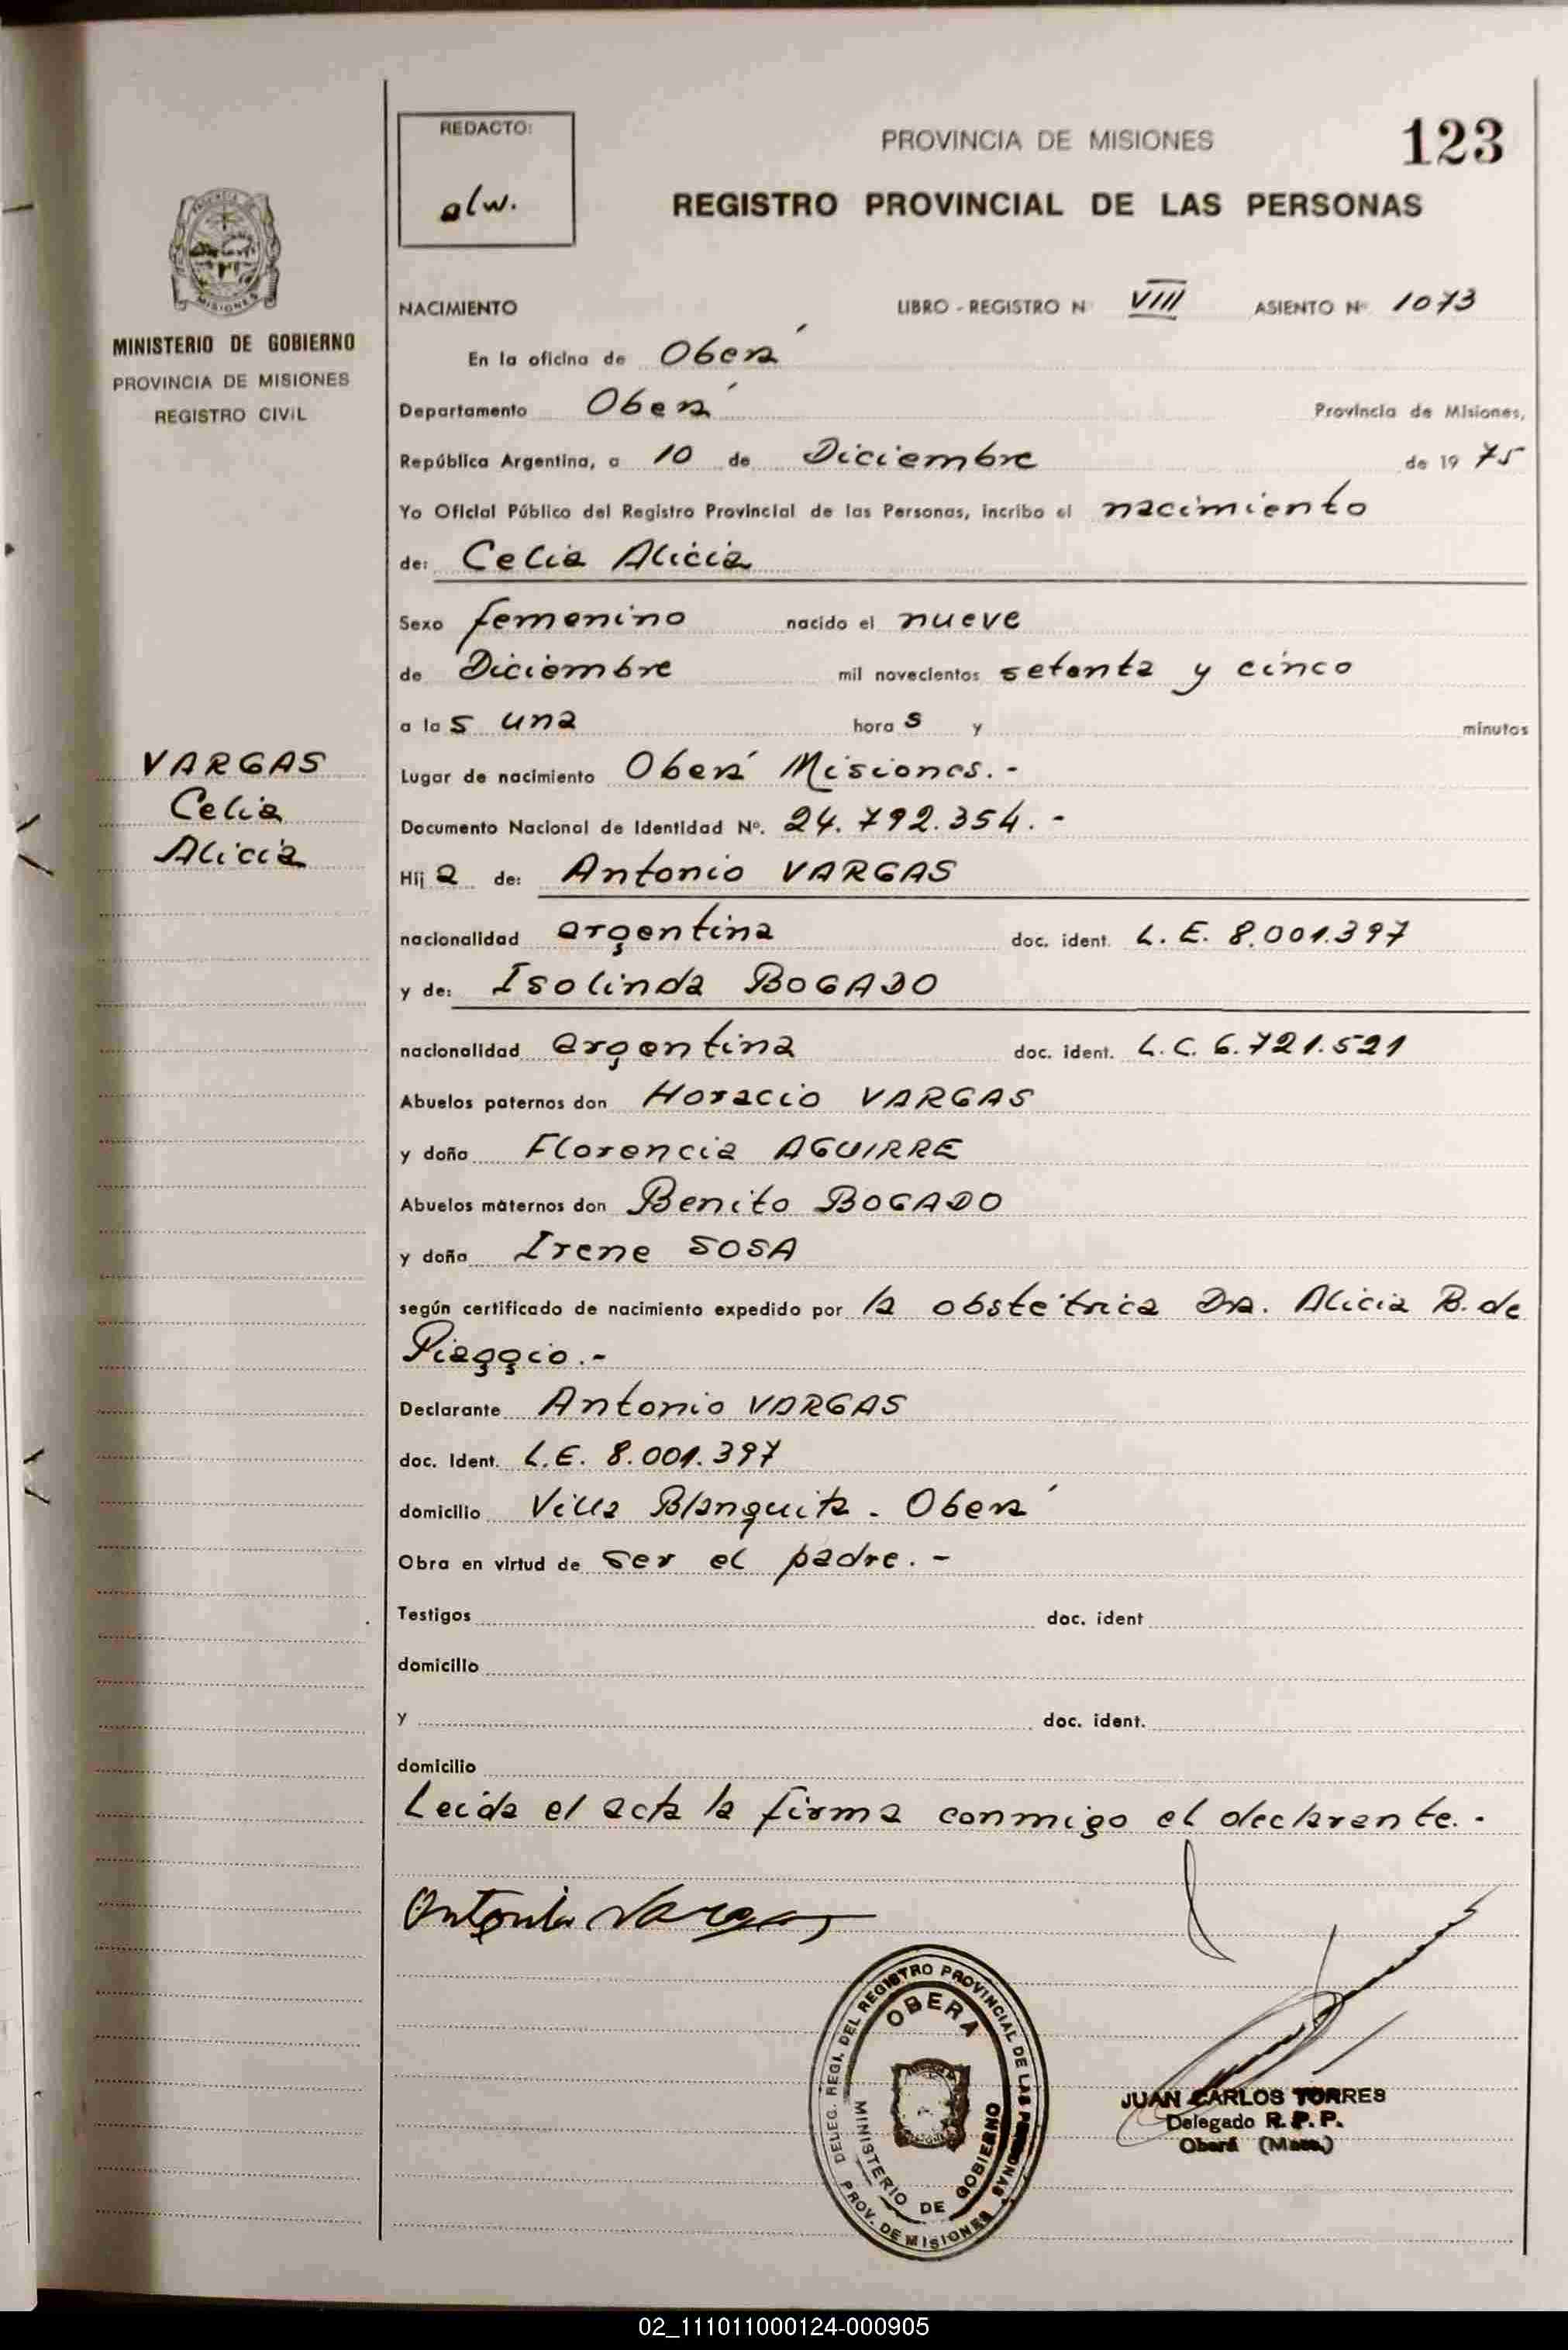 REDACTO:
alw.
PROVINCIA DE MISIONES
123
REGISTRO PROVINCIAL DE LAS PERSONAS
MISIONES
MINISTERIO DE GOBIERNO
PROVINCIA DE MISIONES
REGISTRO CIVIL
NACIMIENTO LIBRO - REGISTRO N VIII ASIENTO Nº 1073
En la oficina de Oberá
Departamento Oberá Provincia de Misiones,
República Argentina, a 10 de Diciembre de 1975
Yo Oficial Público del Registro Provincial de las Personas, incribo el nacimiento
de: Celia Alicia
Sexo femenino nacido el nueve
de Diciembre mil novecientos setenta y cinco
a las una horas y minutos
VARGAS
Celia
Alicia
Lugar de nacimiento Oberá Misiones.-
Documento Nacional de Identidad Nº. 24.792.354.-
Hija de: Antonio VARGAS
nacionalidad argentina doc. ident. L.E. 8.001.397
y de: Isolinda BOGADO
nacionalidad argentina doc. ident. L.C. 6.721.521
Abuelos paternos don Horacio VARGAS
y doña Florencia AGUIRRE
Abuelos maternos don Benito BOGADO
y doña Irene SOSA
según certificado de nacimiento expedido por la obstétrica Dra. Alicia B. de
Piaggio.-
Declarante Antonio VARGAS
doc. Ident. L.E. 8.001.397
domicilio Villa Blanquita - Oberá
Obra en virtud de ser el padre.-
Testigos doc. ident
domicilio
y doc. ident.
domicilio
Leida el acta la firma conmigo el declarante.-
Antonio Vargas
DELEG. REGI. DEL REGISTRO PROVINCIAL DE LAS PERSONAS
OBERA
MINISTERIO DE GOBIERNO
PROV. DE MISIONES
JUAN CARLOS TORRES
Delegado R. P. P.
Oberá (Mnes.)
02_111011000124-000905